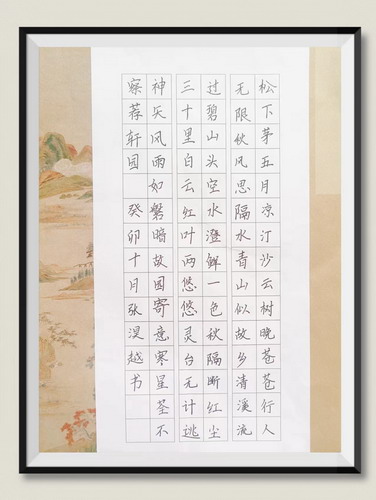 松下茅五月凉汀沙云树晚苍苍行人
无限秋风思隔水青山似故乡清溪流
过碧山头空水澄鲜一色秋隔断红尘
三十里白云红叶两悠悠灵台无计逃
神矢风雨如磐暗故园寄意寒星荃不
察荐轩园 癸卯十月张淏越书